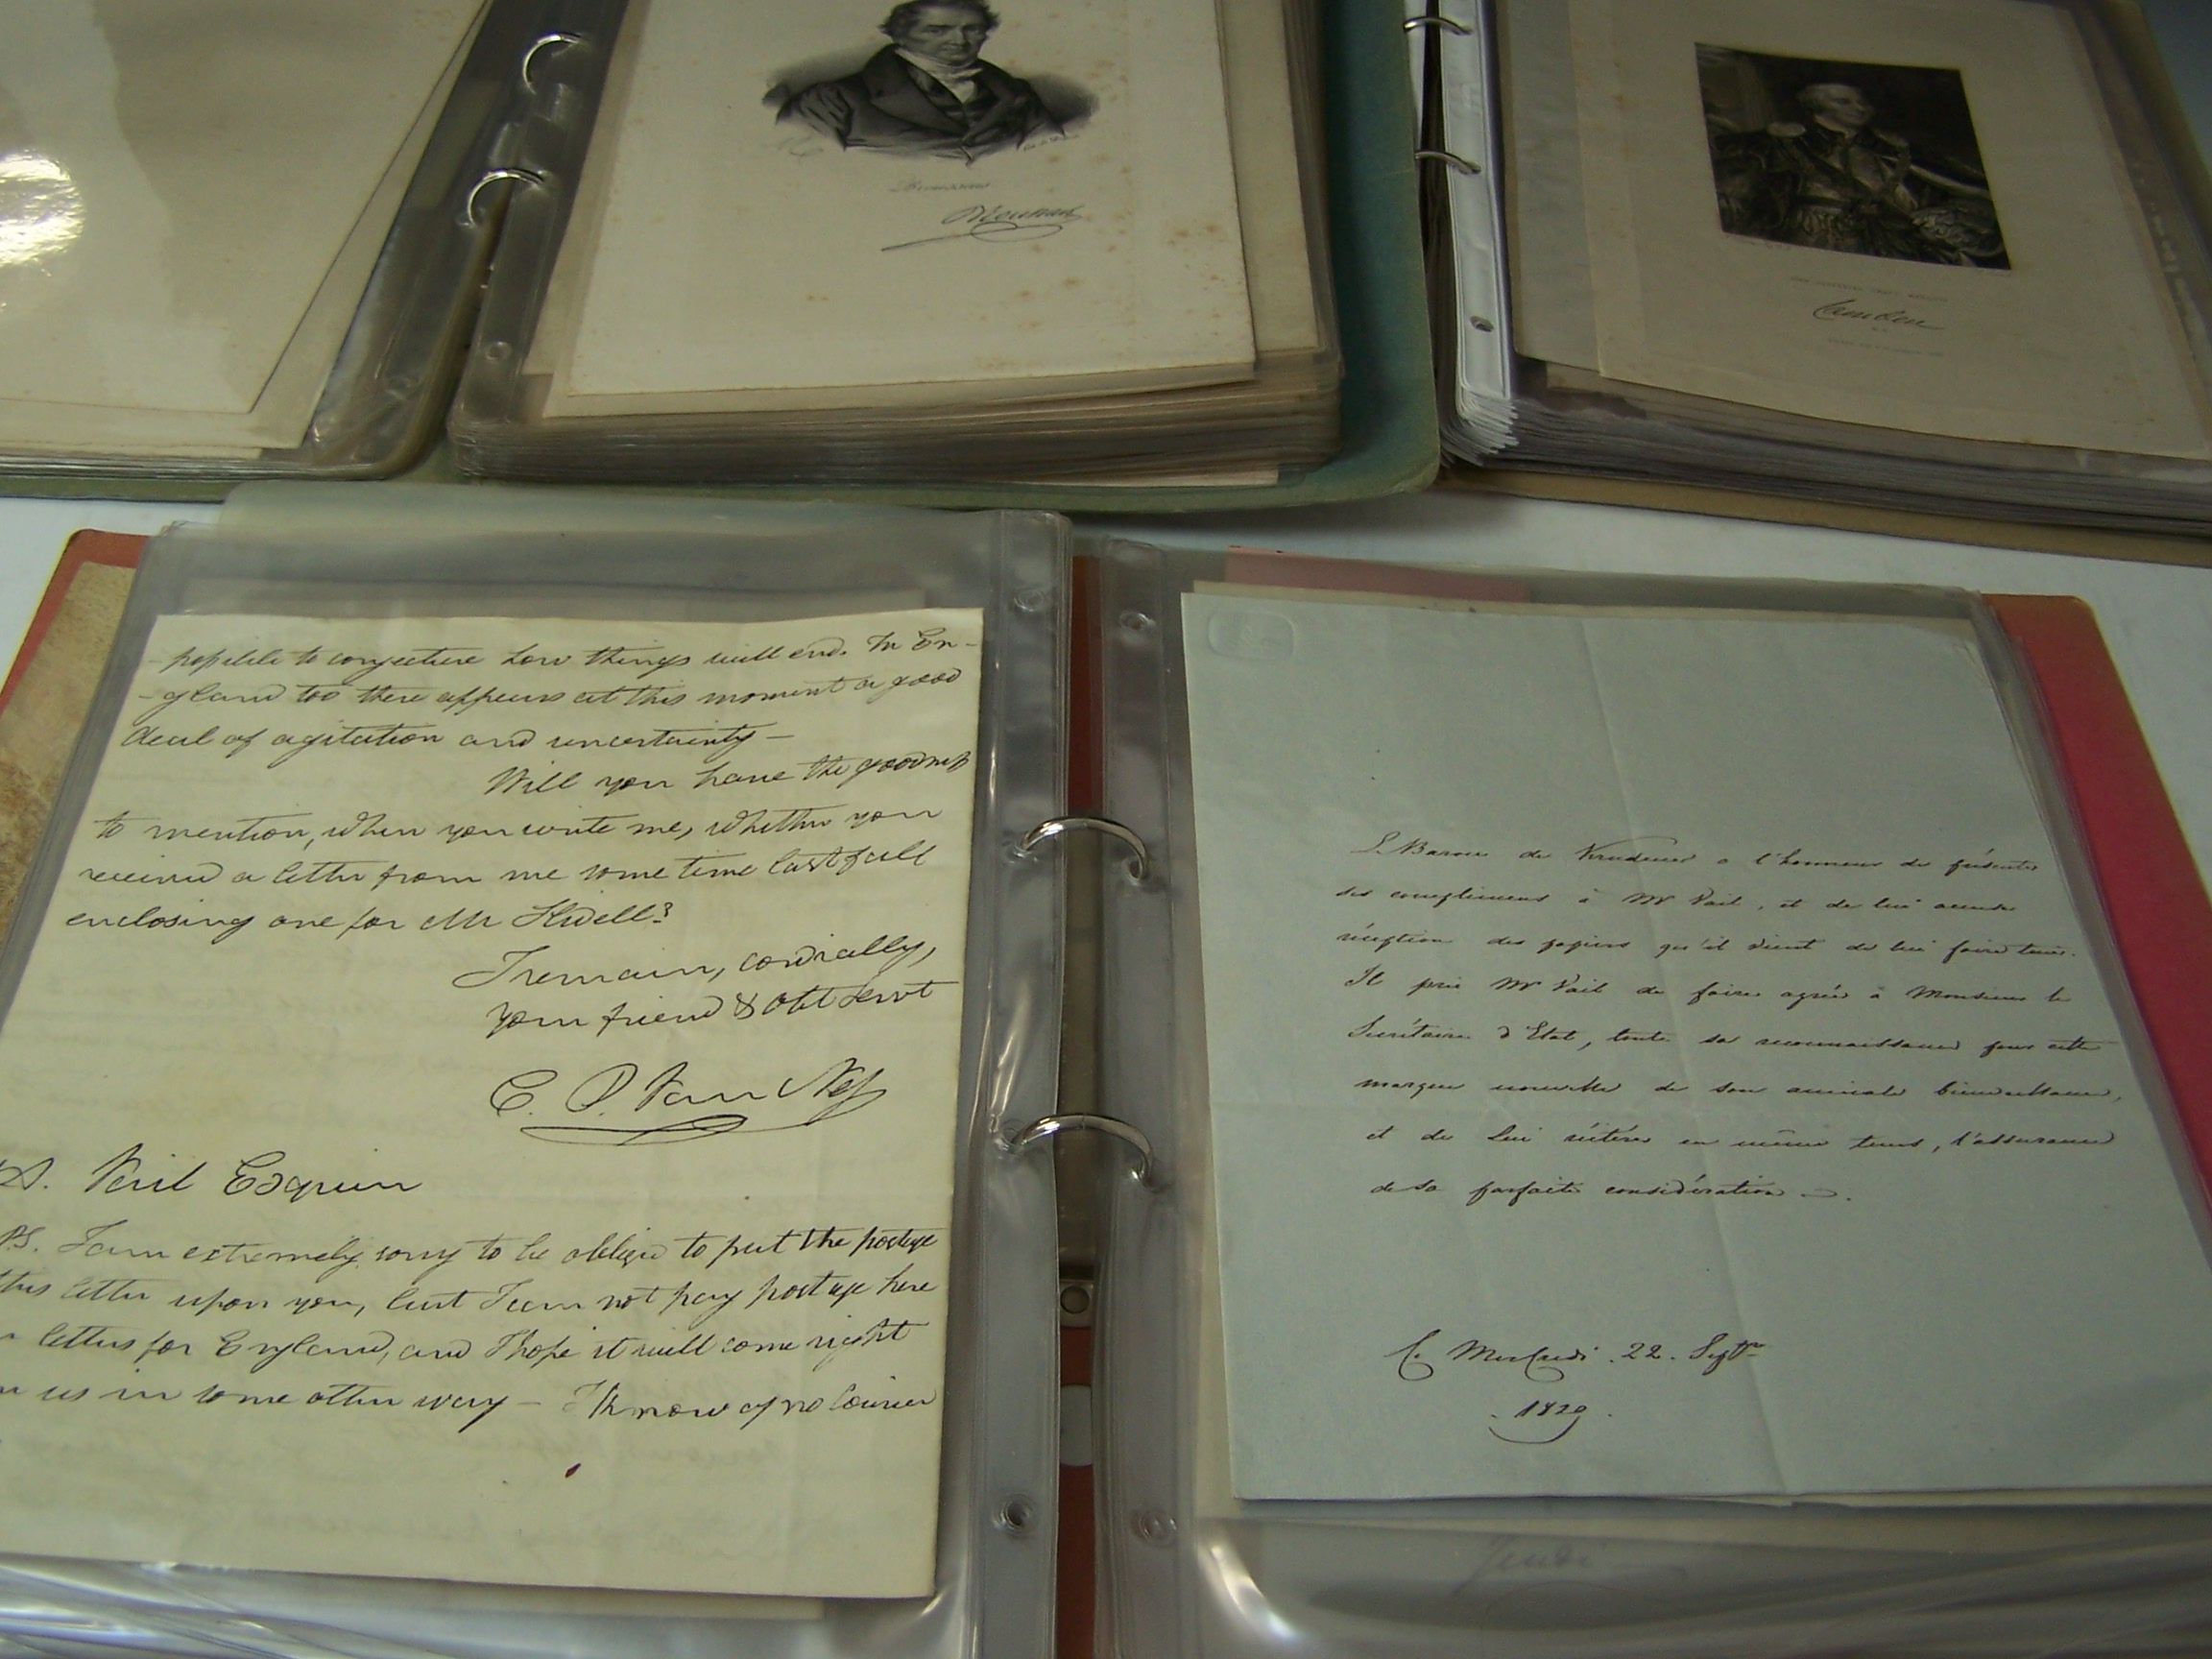 Camden
-possible to conjecture how things will end. In En-
-gland too there appears at this moment a good
deal of agitation and uncertainty—
Will you have the goodness
to mention, when you write me, whether you
received a letter from me some time last fall
enclosing one for Mr
I remain, cordially,
your friend & obt servt
C. P. Van Ness
A. Vail Esquire
PS. I am extremely sorry to be obliged to put the postage
this letter upon you, but I can not pay postage here
letters for England, and I hope it will come right
us in some other way — I know of no Courier
Le Baron de Krudener a l'honneur de présenter
ses compliments à Mr Vail, et de lui accuser
réception des papiers qu'il vient de lui faire tenir.
Il prie Mr Vail de faire agréer à Monsieur le
Secrétaire d'Etat, toute sa reconnaissance pour cette
marque nouvelle de son amicale bienveillance,
et de Lui réitérer en même tems, l'assurance
de sa parfaite considération —.
Ce Mercredi . 22. Septre
. 1829 .
Jeudi